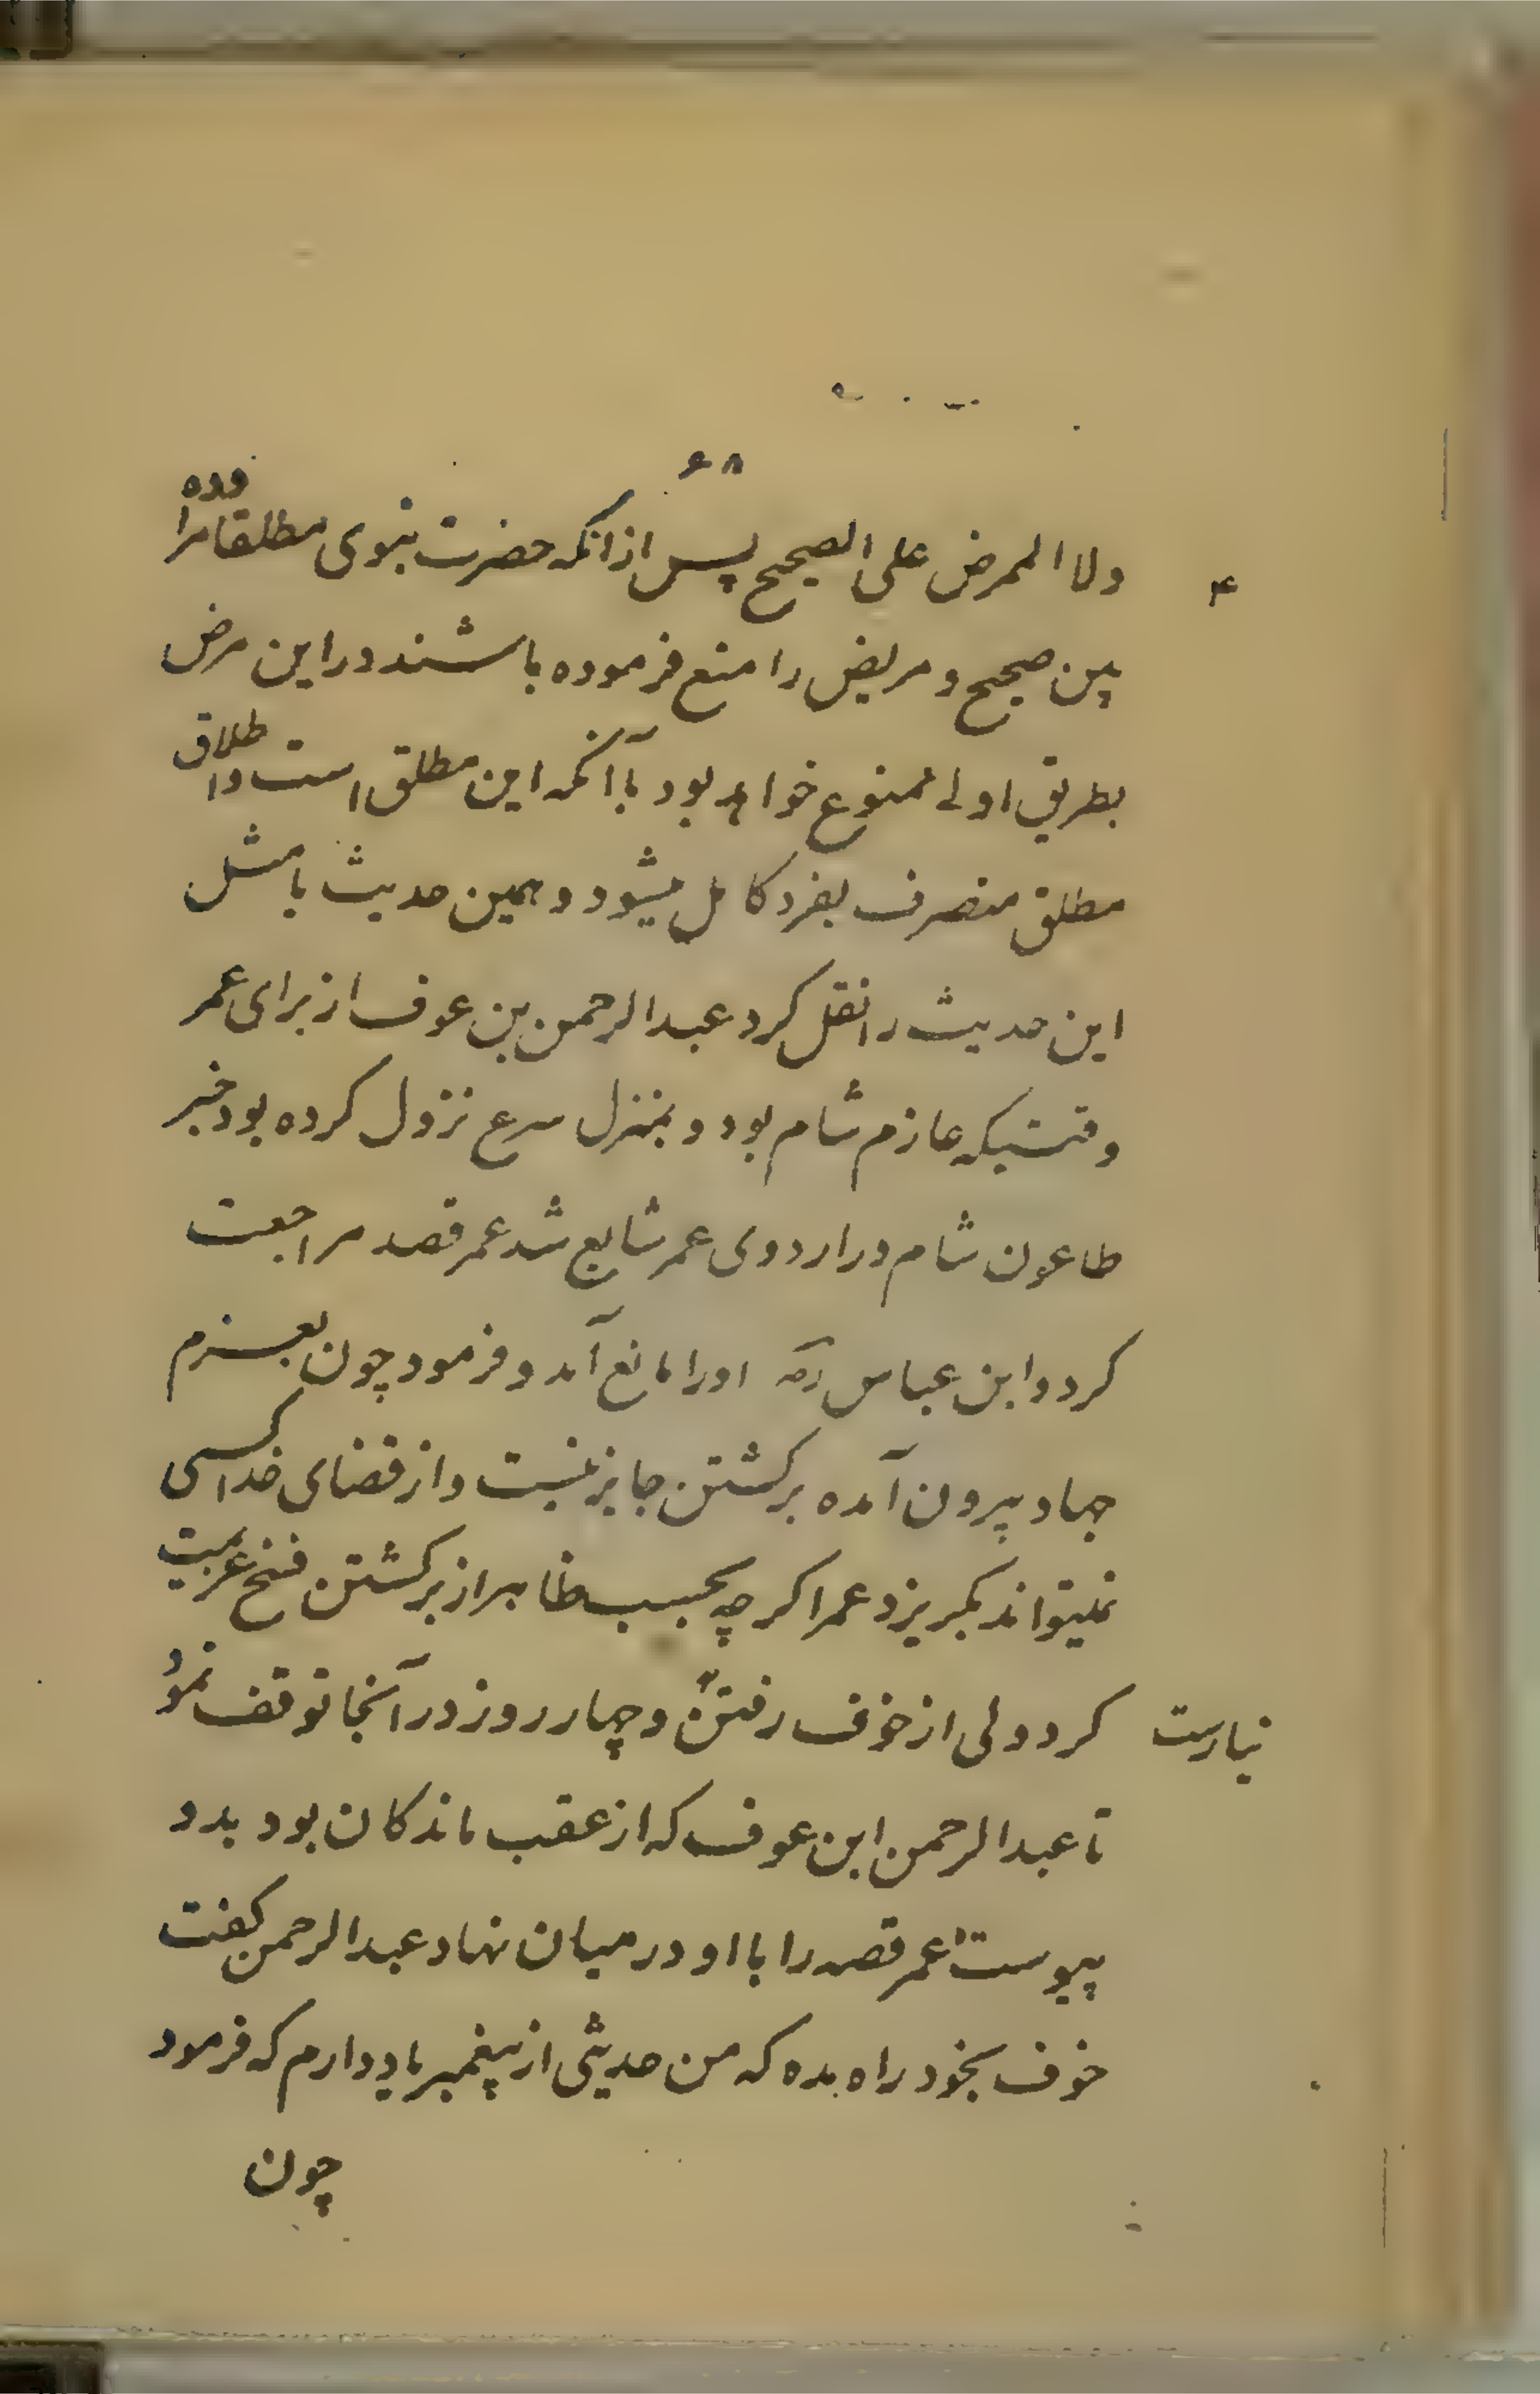 ۶۸
۴
ولا الممرض علی الصحیح پس از انکه حضرت نبوی مطلقا مراوده
بین صحیح و مریض را منع فرموده باشند در این مرض
بطریق اولی ممنوع خواهد بود با آنکه این مطلق است و اطلاق
مطلق منصرف بفرد کامل میشود و همین حدیث یا مثل
این حدیث را نقل کرد عبدالرحمن بن عوف از برای عمر
وقتیکه عازم شام بود و بمنزل سرع نزول کرده بود خبر
طاعون شام در اردوی عمر شایع شد عمر قصد مراجعت
کرد و ابن عباس رضه اورا مانع آمد و فرمود چون بعزم
جهاد بیرون آمده برکشتن جایز نیست و از قضای خدا کسی
نمیتواند بکریزد عمر اکرچه بحسب ظاهر از برکشتن فسخ عزیمت
کرد ولی از خوف رفتن و چهار روز در آنجا توقف نمود
نیارست
تا عبدالرحمن ابن عوف که از عقب ماندکان بود بدو
پیوست عمر قصه را با او در میان نهاد عبدالرحمن کفت
خوف بخود راه مده که من حدیثی از پیغمبر یاد دارم که فرمود
چون